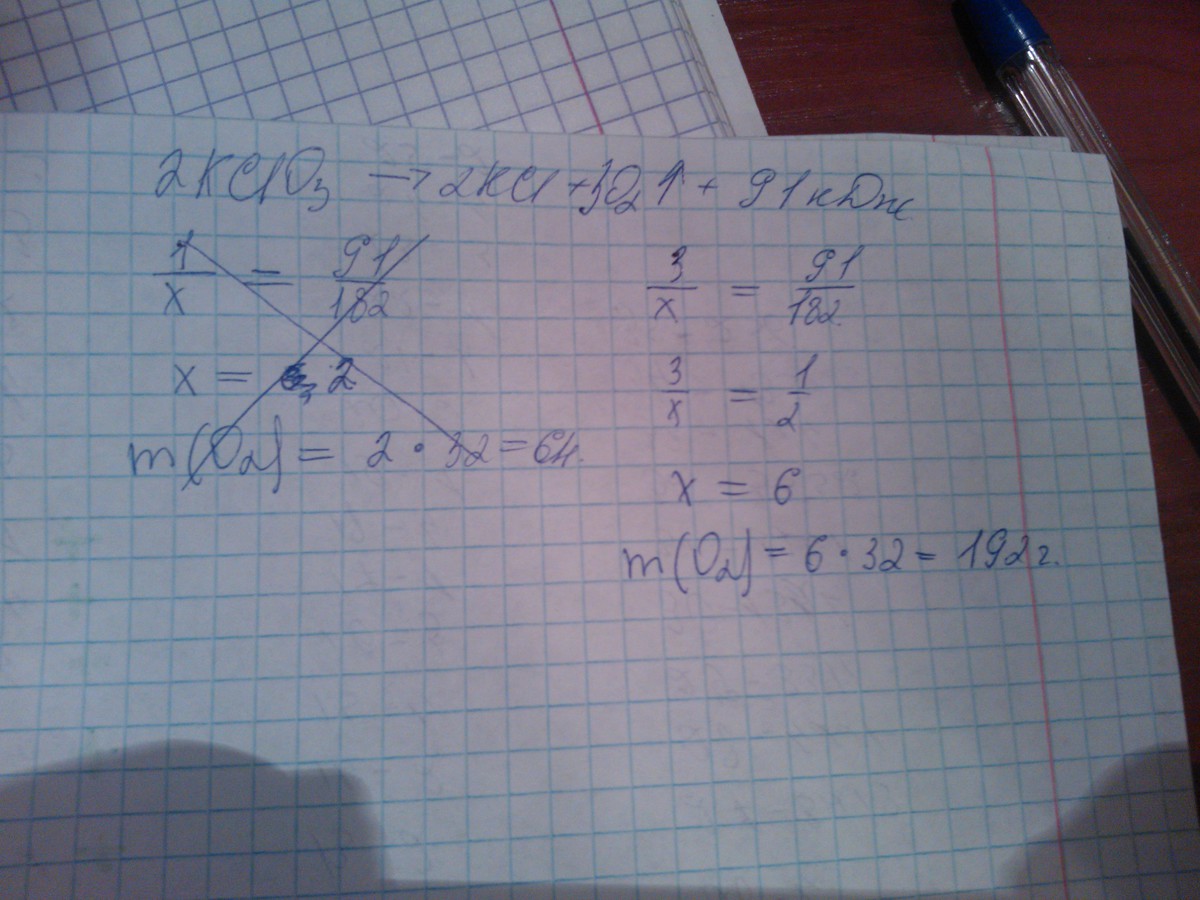 2KClO₃ → 2KCl + 3O₂↑ + 91 кДж
1/x = 91/182
x = 2
m(O₂) = 2 · 32 = 64г.
3/x = 91/182
3/x = 1/2
x = 6
m(O₂) = 6 · 32 = 192г.